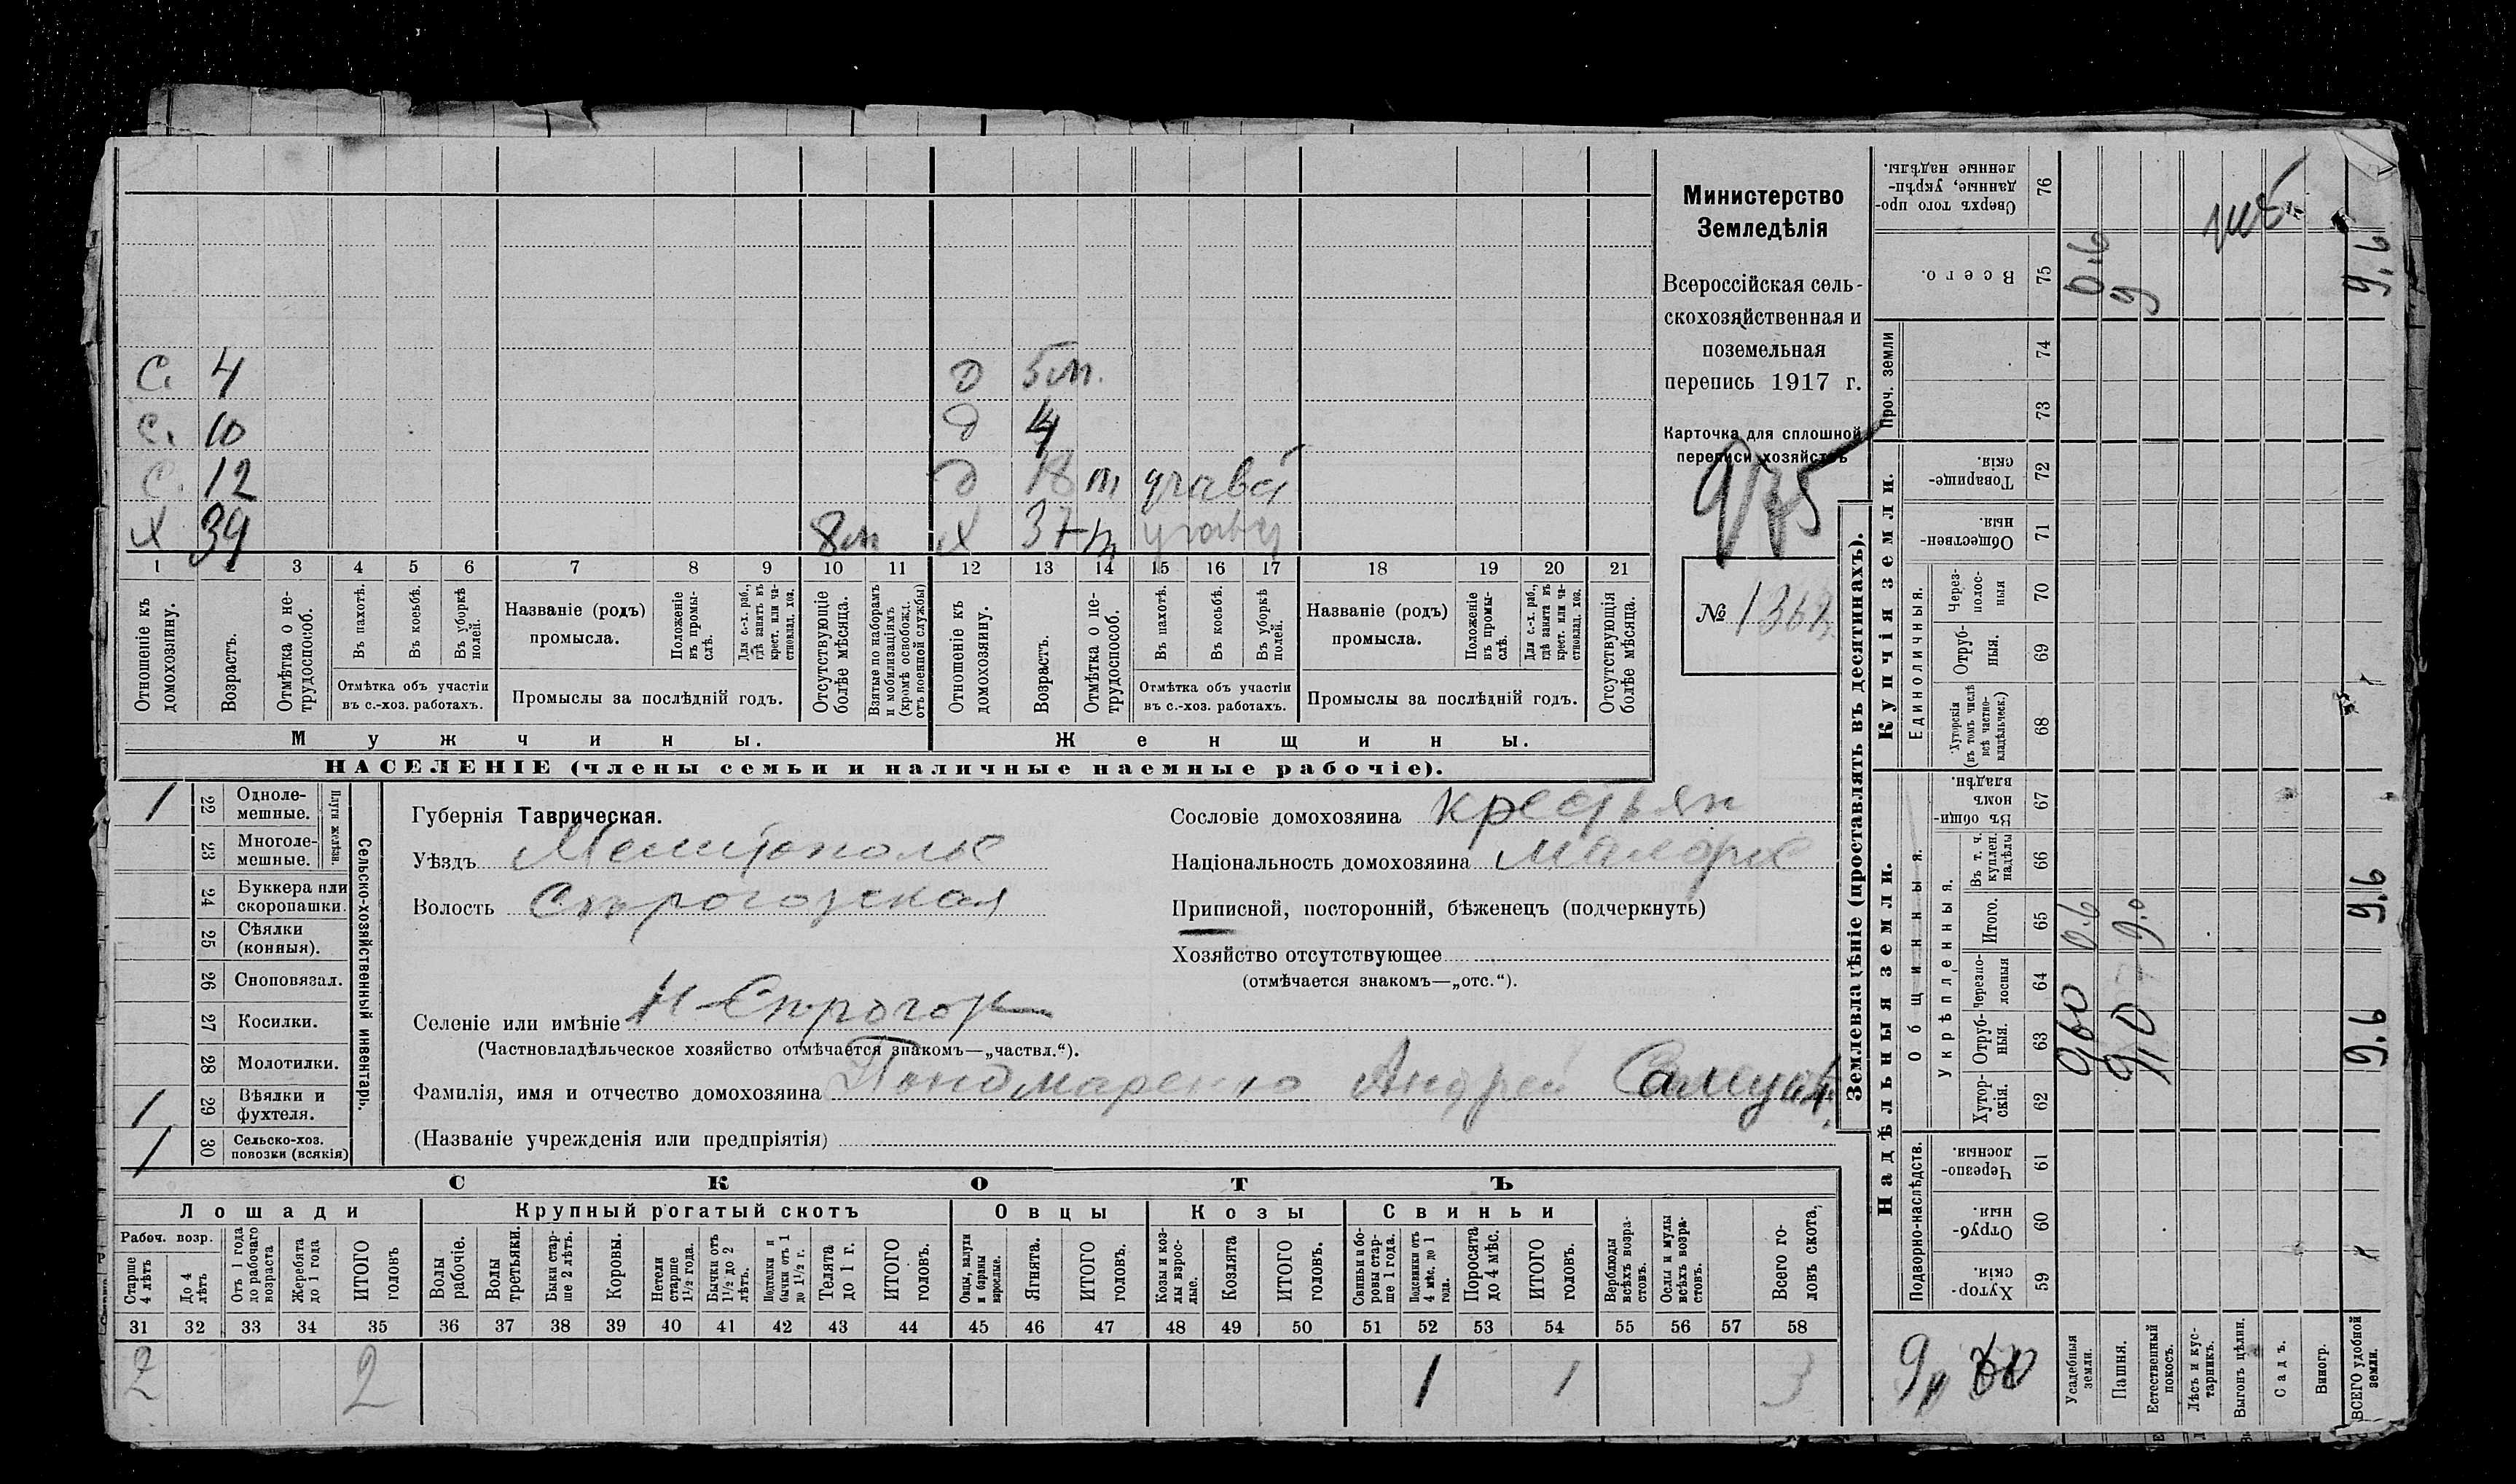 С. 4 д 5 м.
С. 10 д 4
С. 12 д 18 т
х 39 8 м х 37 т
1 2 3 4 5 6 7 8 9 10 11 12 13 14 15 16 17 18 19 20 21
Отношеніе къ домохозяину.
Возрастъ.
Отмѣтка о не-
трудоспособ.
Въ пахотѣ.
Въ косьбѣ.
Въ уборкѣ
полей.
Отмѣтка объ участіи
въ с.-хоз. работахъ.
Названіе (родъ)
промысла.
Положеніе
въ промы-
слѣ.
Для с.-х. раб.,
гдѣ занятъ въ
крест. или ча-
стновлад. хоз.
Промыслы за послѣдній годъ.
Отсутствующіе
болѣе мѣсяца.
Взятые по наборамъ
и мобилизаціямъ
(кромѣ освобожд.
отъ военной службы)
Отношеніе къ
домохозяину.
Возрастъ.
Отмѣтка о не-
трудоспособ.
Въ пахотѣ.
Въ косьбѣ.
Въ уборкѣ
полей.
Отмѣтка объ участіи
въ с.-хоз. работахъ.
Названіе (родъ)
промысла.
Положеніе
въ промы-
слѣ.
Для с.-х. раб.,
гдѣ занята въ
крест. или ча-
стновлад. хоз.
Промыслы за послѣдній годъ.
Отсутствующія
болѣе мѣсяца.
Мужчины.
Женщины.
НАСЕЛЕНІЕ (члены семьи и наличные наемные рабочіе).
Министерство
Земледѣлія
Всероссійская сель-
скохозяйственная и
поземельная
перепись 1917 г.
Карточка для сплошной
переписи хозяйствъ
975
№
1 22 Одноле-
мешные.
23 Многоле-
мешные.
Плуги желѣзн.
24 Буккера или
скоропашки.
25 Сѣялки
(конныя).
26 Сноповязал.
27 Косилки.
28 Молотилки.
1 29 Вѣялки и
фухтеля.
1 30 Сельско-хоз.
повозки (всякія)
Сельско-хозяйственный инвентарь.
Губернія Таврическая.
Уѣздъ Мелитополь
Волость Сѣрогозская
Селеніе или имѣніе Н-Сѣрогоз
(Частновладѣльческое хозяйство отмѣчается знакомъ—„частвл.“).
Фамилія, имя и отчество домохозяина Пономаренко Андрей
(Названіе учрежденія или предпріятія)
Сословіе домохозяина крестьян
Національность домохозяина малорос
Приписной, посторонній, бѣженецъ (подчеркнуть)
Хозяйство отсутствующее
(отмѣчается знакомъ—„отс.“).
СКОТЪ
Лошади
Крупный рогатый скотъ
Овцы
Козы
Свиньи
Рабоч. возр.
Старше
4 лѣтъ
До 4
лѣтъ
Отъ 1 года
до рабочаго
возраста
Жеребята
до 1 года
ИТОГО
головъ
Волы
рабочіе.
Волы
третьяки.
Быки стар-
ше 2 лѣтъ.
Коровы.
Нетели
старше
1½ года.
Бычки отъ
1½ до 2
лѣтъ.
Подтелки и
бычки отъ 1
до 1½ г.
Телята
до 1 г.
ИТОГО
головъ.
Овцы, валухи
и бараны
взрослые.
Ягнята.
ИТОГО
головъ.
Козы и коз-
лы взрос-
лые.
Козлята
ИТОГО
головъ.
Свиньи и бо-
ровы стар-
ше 1 года.
Подсвинки отъ
4 мѣс. до 1
года.
Поросята
до 4 мѣс.
ИТОГО
головъ.
Верблюды
всѣхъ возра-
стовъ.
Ослы и мулы
всѣхъ возра-
стовъ.
Всего го-
ловъ скота.
31 32 33 34 35 36 37 38 39 40 41 42 43 44 45 46 47 48 49 50 51 52 53 54 55 56 57 58
2 2 1 1 3
Землевладѣніе (проставлять въ десятинахъ).
Надѣльныя земли.
Купчія земли.
Проч. земли
Подворно-наслѣдств.
Общинныя.
Укрѣпленныя.
Единоличныя.
Сверхъ того про-
данные, укрѣп-
ленные надѣлы.
76
Всего.
75
0.6
9
9.6
74
73
Товарище-
скія.
72
Обществен-
ныя.
71
Через-
полос-
ныя
70
Отруб-
ныя.
69
Хуторскія
(въ томъ числѣ
всѣ частно-
владѣльческ.)
68
Въ общин-
номъ
владѣн.
67
Въ т. ч.
куплен.
надѣлы
66
Итого.
65
0.6
9.0
9.6
Черезпо-
лосныя
64
Отруб-
ныя.
63
9.6
Хутор-
скія.
62
Черезпо-
лосныя.
61
Отруб-
ныя.
60
Хутор-
скія.
59
Усадебныя
земли.
Пашня.
Естественный
покосъ.
Лѣсъ и кус-
тарникъ.
Выгонъ цѣлин.
Садъ.
Виногр.
ВСЕГО удобной
земли.